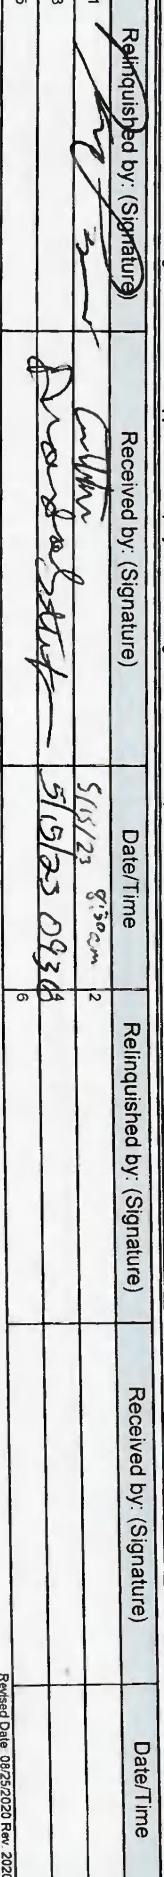 Relinquished by: (Signature) Received by: (Signature) Date/Time Relinquished by: (Signature) Received by: (Signature) Date/Time
1 5/15/23 8:30am 2
3 5/15/23 0930 4
5 6
Revised Date 08/25/2020 Rev. 2020